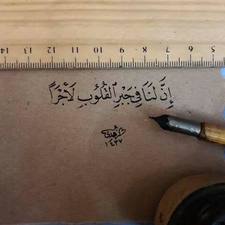 14 13 12 11 10 9 8 7 6 5
إِنَّ لَنَا فِي جَبْرِ الْقُلُوبِ لَأَجْرًا
١٤٣٧